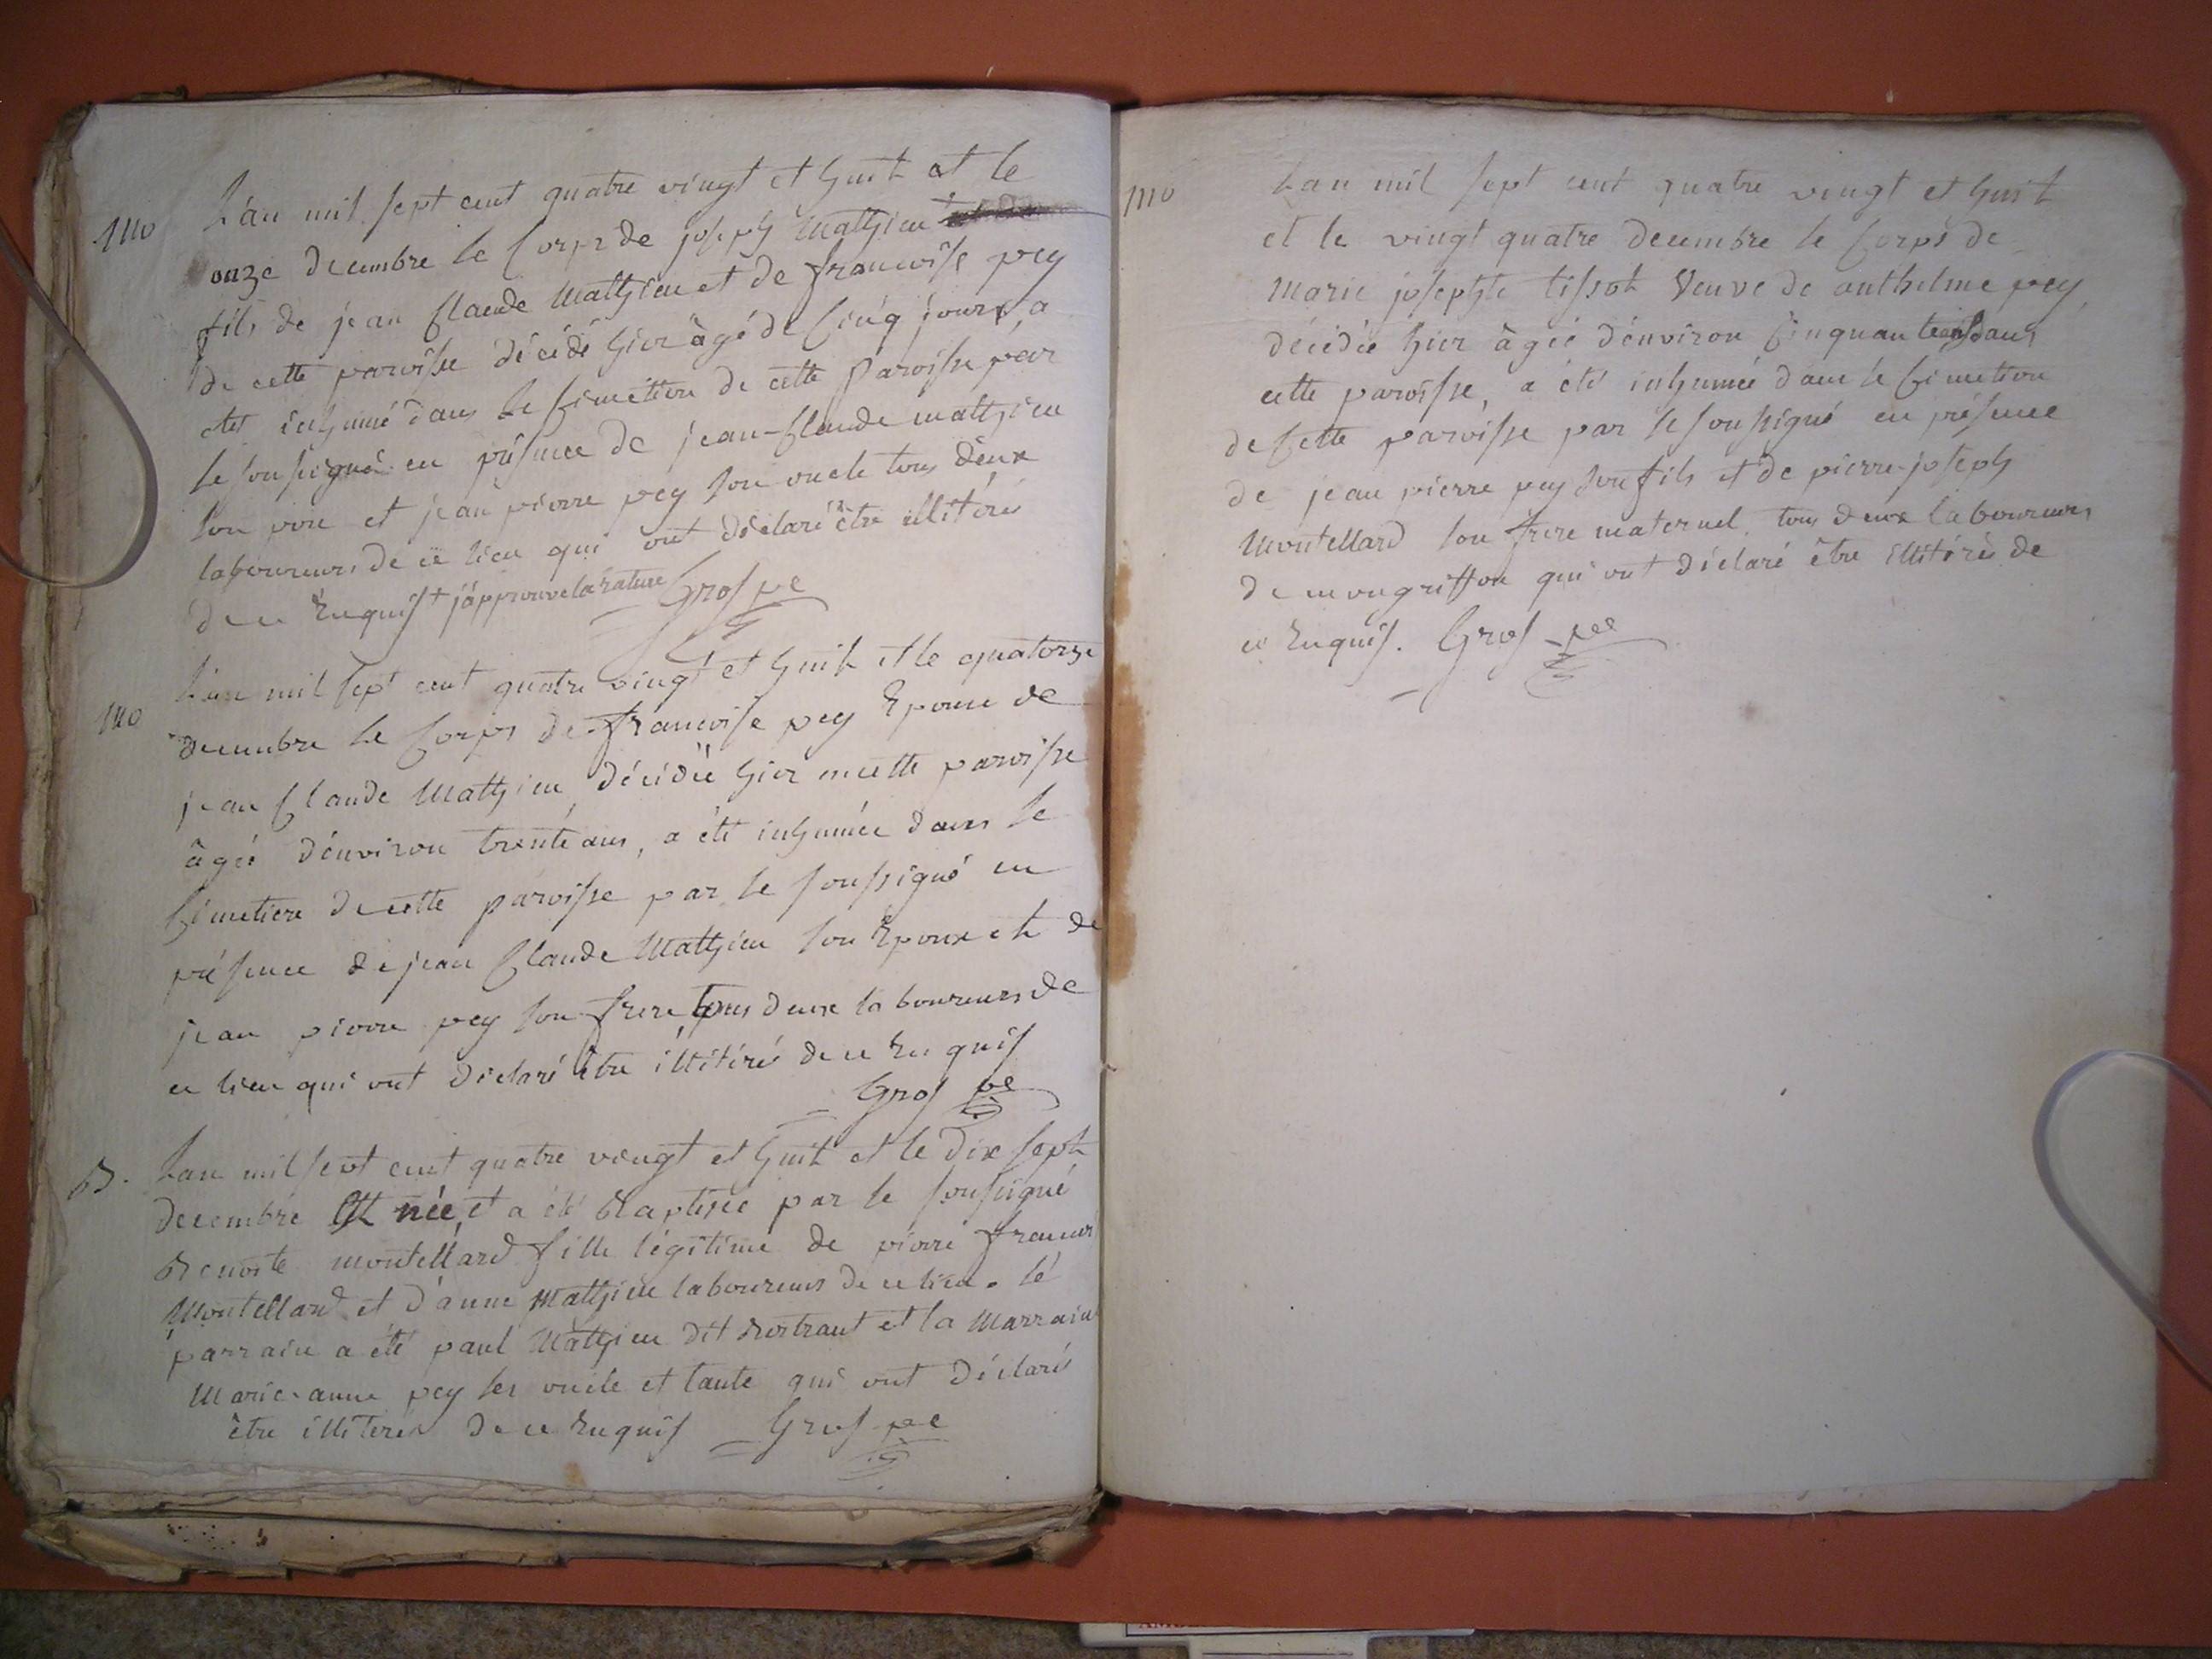 Mo
L'an mil sept cent quatre vingt et huit et le
onze decembre le Corps de joseph Mathieu +
fils de jean Claude Mathieu et de francoise pey
de cette paroisse décédé hier âgé de Cinq jours, a
eté inhumé dans le Cimetiere de cette Paroisse par
le soussigné en présence de jean-Claude mathieu
son pere et jean pierre pey son oncle tous deux
laboureurs de ce lieu qui ont déclaré être illitérés
de ce Enquis + j'approuve la rature Gros pe
Mo
L'an mil sept cent quatre vingt et huit et le quatorze
decembre le Corps de francoise pey Epouse de
jean Claude Mathieu, décédée hier en cette paroisse
âgée d'environ trente ans, a été inhumée dans le
Cimetiere de cette paroisse par le soussigné en
présence de jean Claude Mathieu son Epoux et de
jean pierre pey son frere tous deux laboureurs de
ce lieu qui ont déclaré être illitérés de ce Enquis
Gros pe
B.
L'an mil sept cent quatre vingt et huit et le dix sept
decembre Est née, et a été Baptisée par le soussigné
Benoite montellard fille légitime de pierre francois
Montellard et d'anne Mathieu laboureurs de ce lieu. le
parrain a été paul Mathieu dit et la Marraine
Marie-anne pey ses oncle et tante qui ont déclaré
être illiterés de ce Enquis Gros pe
Mo
L'an mil sept cent quatre vingt et huit
et le vingt quatre decembre le Corps de
Marie josephte tissot Veuve de anthelme pey,
décédée hier âgée d'environ Cinquante ans dans
cette paroisse, a été inhumée dans le Cimetiere
de Cette paroisse par le soussigné en présence
de jean pierre pey son fils et de pierre-joseph
Montellard son frere maternel, tous deux laboureurs
de mongriffon qui ont déclaré être illitérés de
ce Enquis. Gros pe